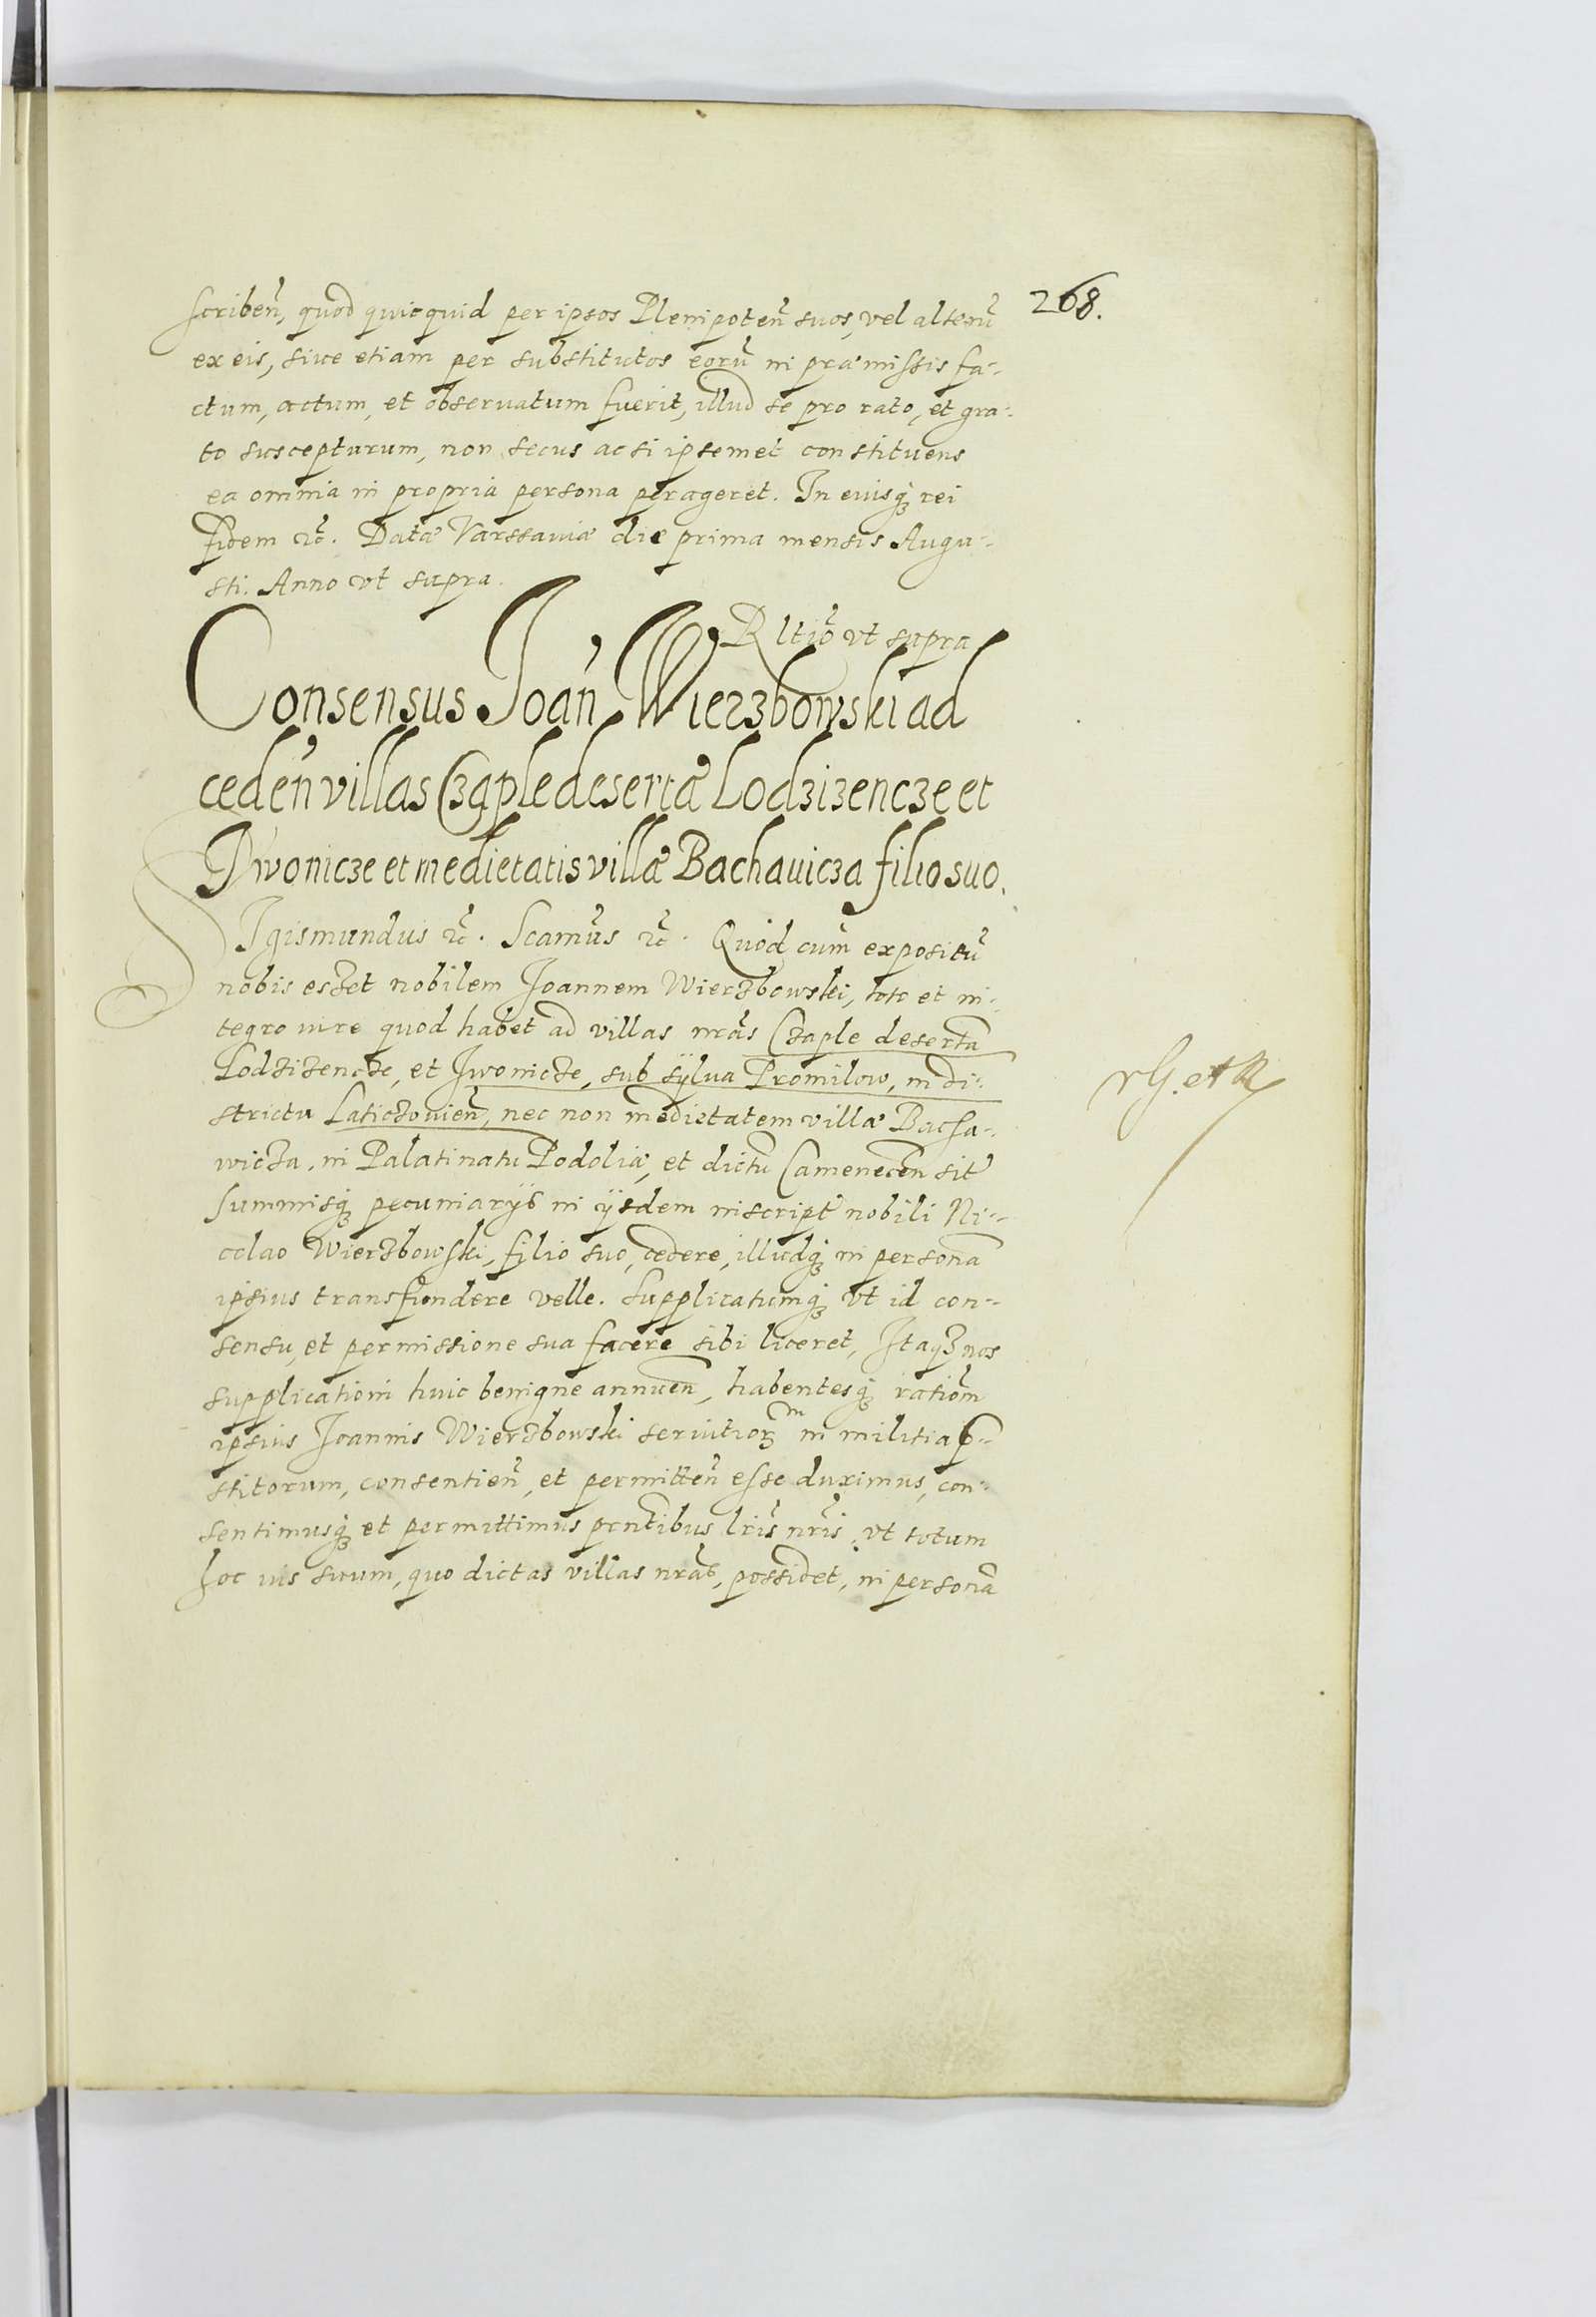 268.
scribeñ, quod quicquid per ipsos Plenipoteñ suos, vel alterũ
ex eis, siue etiam per substitutos eorũ in præmissis fa-
ctum, actum, et obseruatum fuerit, illud se pro rato, et gra-
to suscepturum, non secus ac si ipsemet constituens
ea omnia in propria persona perageret. In cuiusq; rei
fidem ꝛc̃. Datæ Varssauiæ die prima mensis Augu-
sti. Anno vt supra.
Rltiõ vt supra
Consensus Joañ Wierzbowski ad
cedeñ villas Czaple desertã Lodzizencze et
Jwonicze et medietatis villæ Bachauicza filio suo.
SIgismundus ꝛc̃. Scamũs ꝛc̃. Quod cum expositũ
nobis esset nobilem Joannem Wierzbowski, toto et in-
tegro iure quod habet ad villas nrãs Czaple desertã
Lodzizencze, et Jwonicze, sub sylua Promilow, in di-
strictu Laticzouieñ, nec non medietatem villæ Bacha-
wicza, in Palatinatu Podoliæ, et dictũ Camenecen̄ sit̃
summisq; pecuniarijs in ijsdem inscript̃ nobili Ni-
colao Wierzbowski, filio suo, cedere, illudq; in personã
ipsius transfundere velle. Supplicatumq; vt id con-
sensu, et permissione sua facere sibi liceret, Itaq; nos
supplicationi huic benigne annueñ, habentesq; ratioñm
ipsius Joannis Wierzbowski seruitiorᷓ in militia p̃-
stitorum, consentieñ, et permitteñ esse duximus, con-
sentimusq; et permittimus pr̃ntibus lrĩs nrĩs, vt totum
hoc ius suum, quo dictas villas nrãs, possidet, in personã